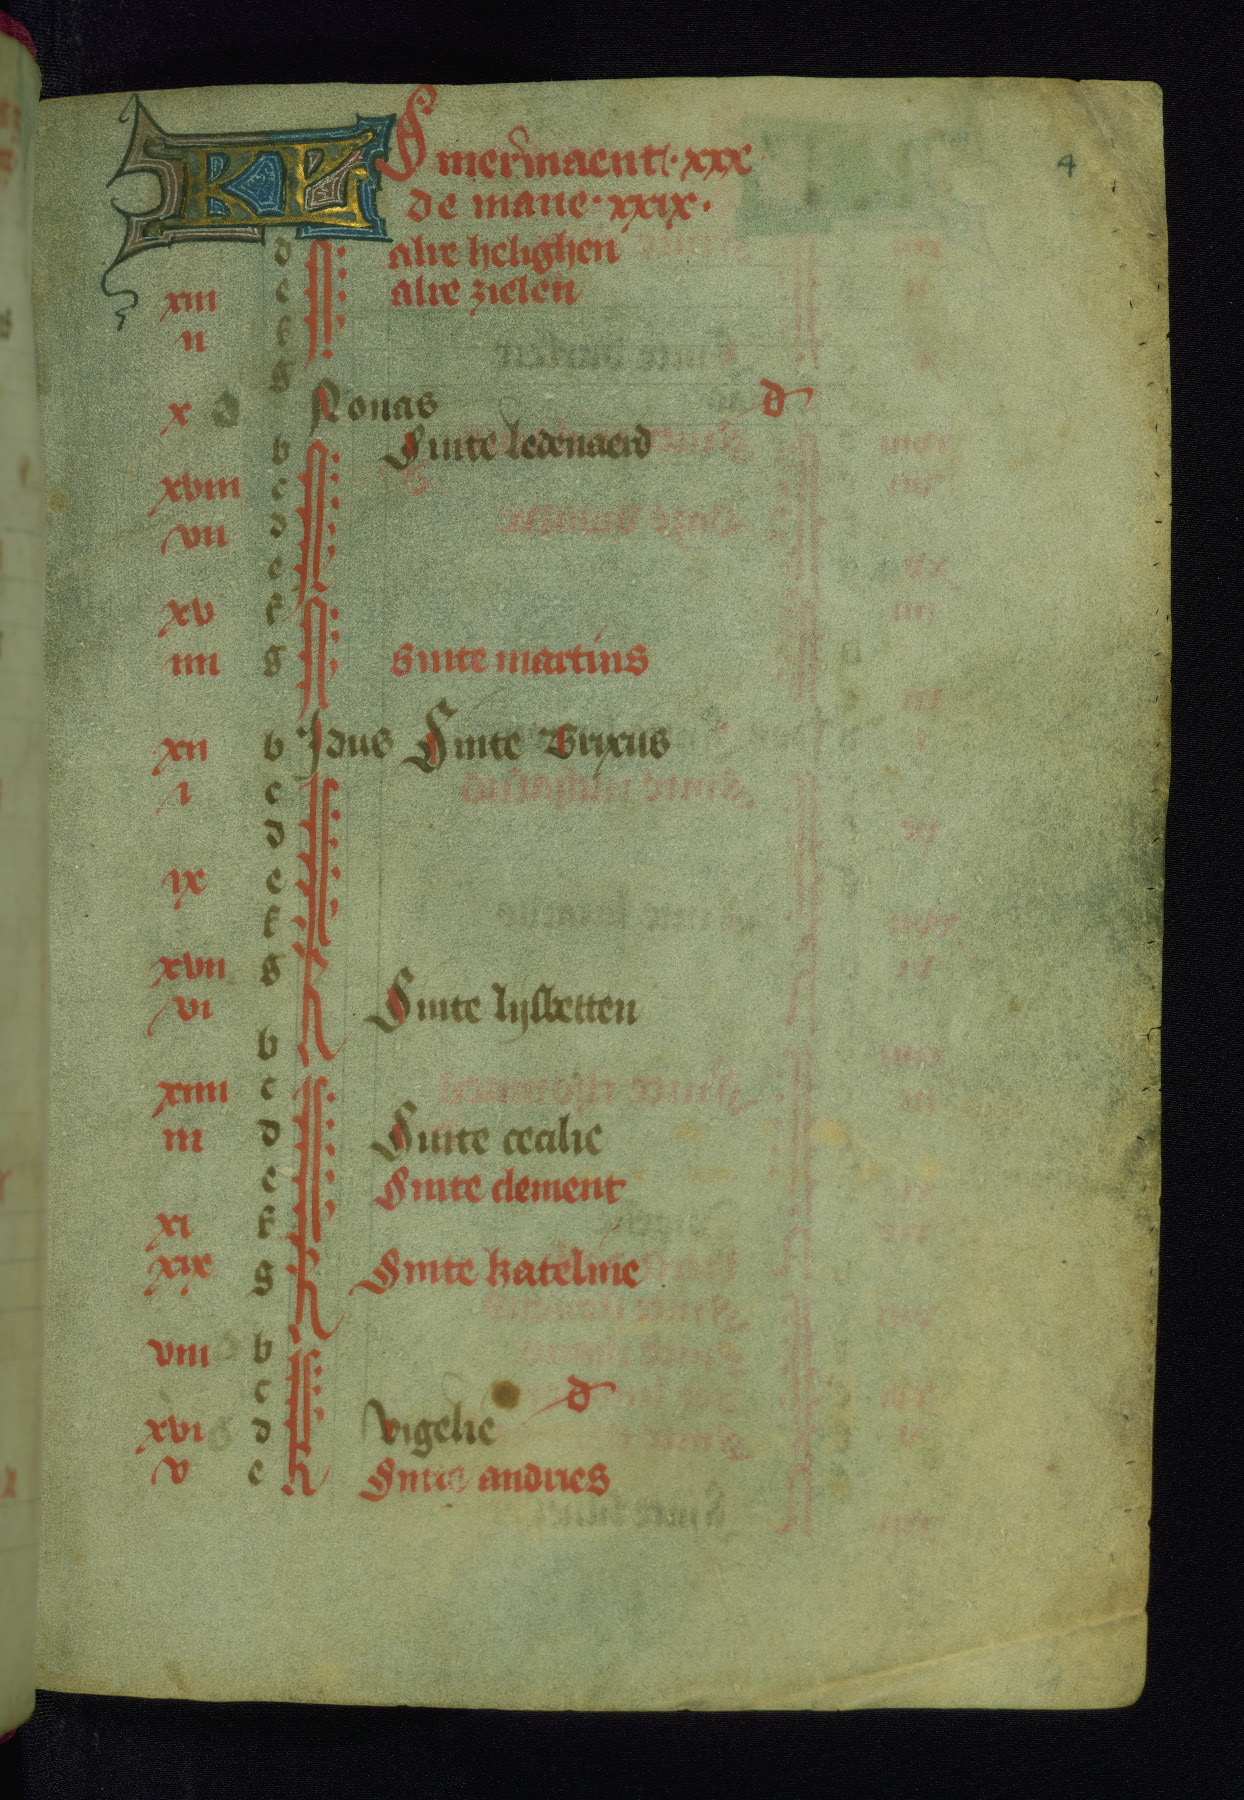 KL Smeermaent · xxx
de mane · xxix ·
d N alre helighen
xiii e alre zielen
ii f
g
x Nonas d
b N Sinte ledenaerd
xviii c
vii d
e
xv f N
iiii g sinte martins
xii b Idus Sinte Brixius
i c
d
ix e
f
xvii g
vi K Sinte lijsbetten
b
xiiii c
iii d Sinte cecilie
e Sinte clement
xi f
xix g K Sinte kateline
viii b
c d
xvi d vigelie
v e K Sinte andries
4